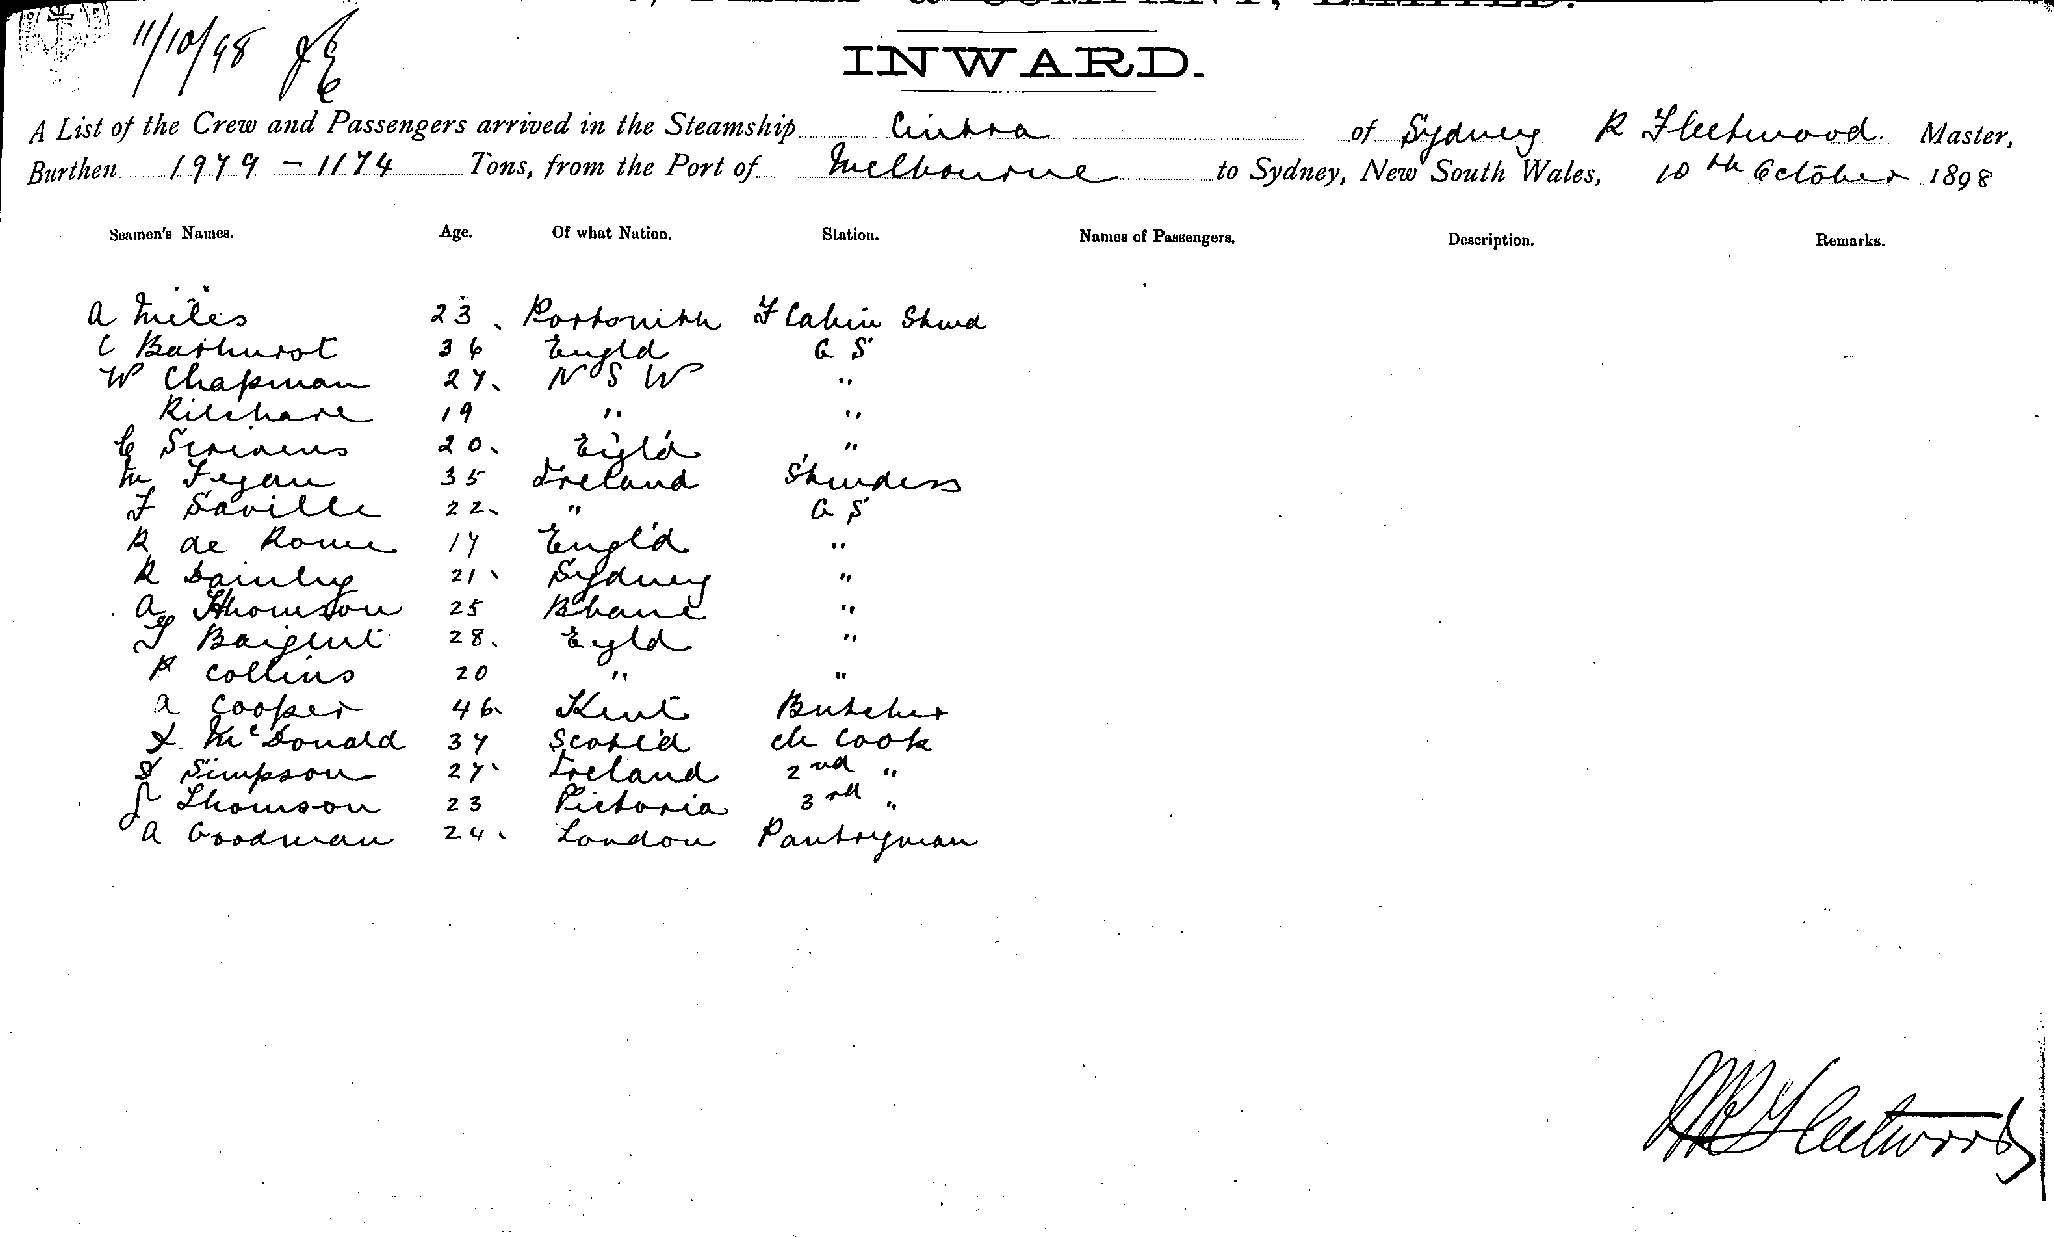 & COMPANY, LIMITED.
11/10/98
INWARD.
A List of the Crew and Passengers arrived in the Steamship Cintra of Sydney R Fleetwood. Master,
Burthen 1979 - 1174 Tons, from the Port of Melbourne to Sydney, New South Wales, 10th October 1898
Seamen's Names. Age. Of what Nation. Station. Names of Passengers. Description. Remarks.
A Miles 23. Portsmith F Cabin Stwd
C Bathurst 36 Engld G S
W Chapman 27. N S W "
Kilshare 19 " "
C Scrivens 20. Engl'd "
M Fegan 35 Ireland Stwdess
F Saville 22. " G S
R de Rome 17 Engl'd "
R Dainley 21. Sydney "
A Thomson 25 Bbane "
Baigent 28. Engld "
R Collins 20 " "
A Cooper 46. Kent Butcher
McDonald 37 Scotl'd Ch Cook
S Simpson 27. Ireland 2nd "
J Thomson 23 Victoria 3rd "
A Goodman 24. London Pantryman
Fleetwood